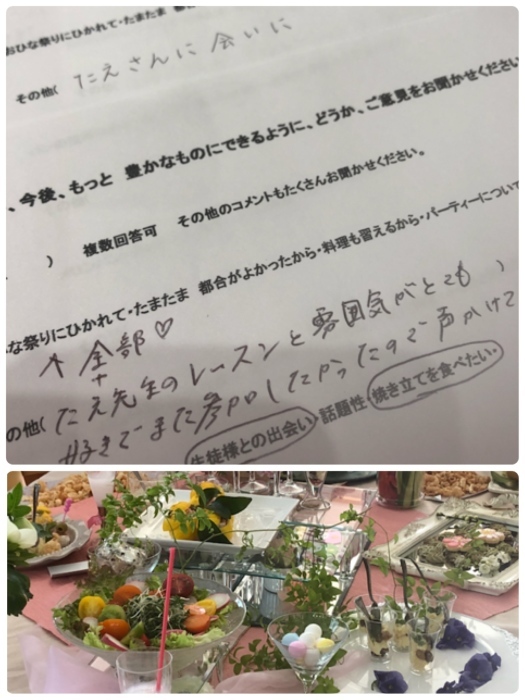 おひな祭りにひかれて・たまたま
その他( たえさんに 会いに
、今後、もっと 豊かなものにできるように、どうか、ご意見をお聞かせください
) 複数回答可 その他のコメントもたくさんお聞かせください。
な祭りにひかれて・たまたま 都合がよかったから・料理も習えるから・パーティーについて
↑全部♡
+
の他( たえ先生のレースンと雰囲気がとても )
好きでまた参加したかったので声かけて
生徒様との出会い・話題性・焼き立てを食べたい・